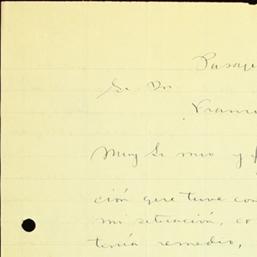 Pasaje
Sr. Dn
Franci
Muy Sr. mio y
ción que tuve con
mi situación, co
tenía remedio,